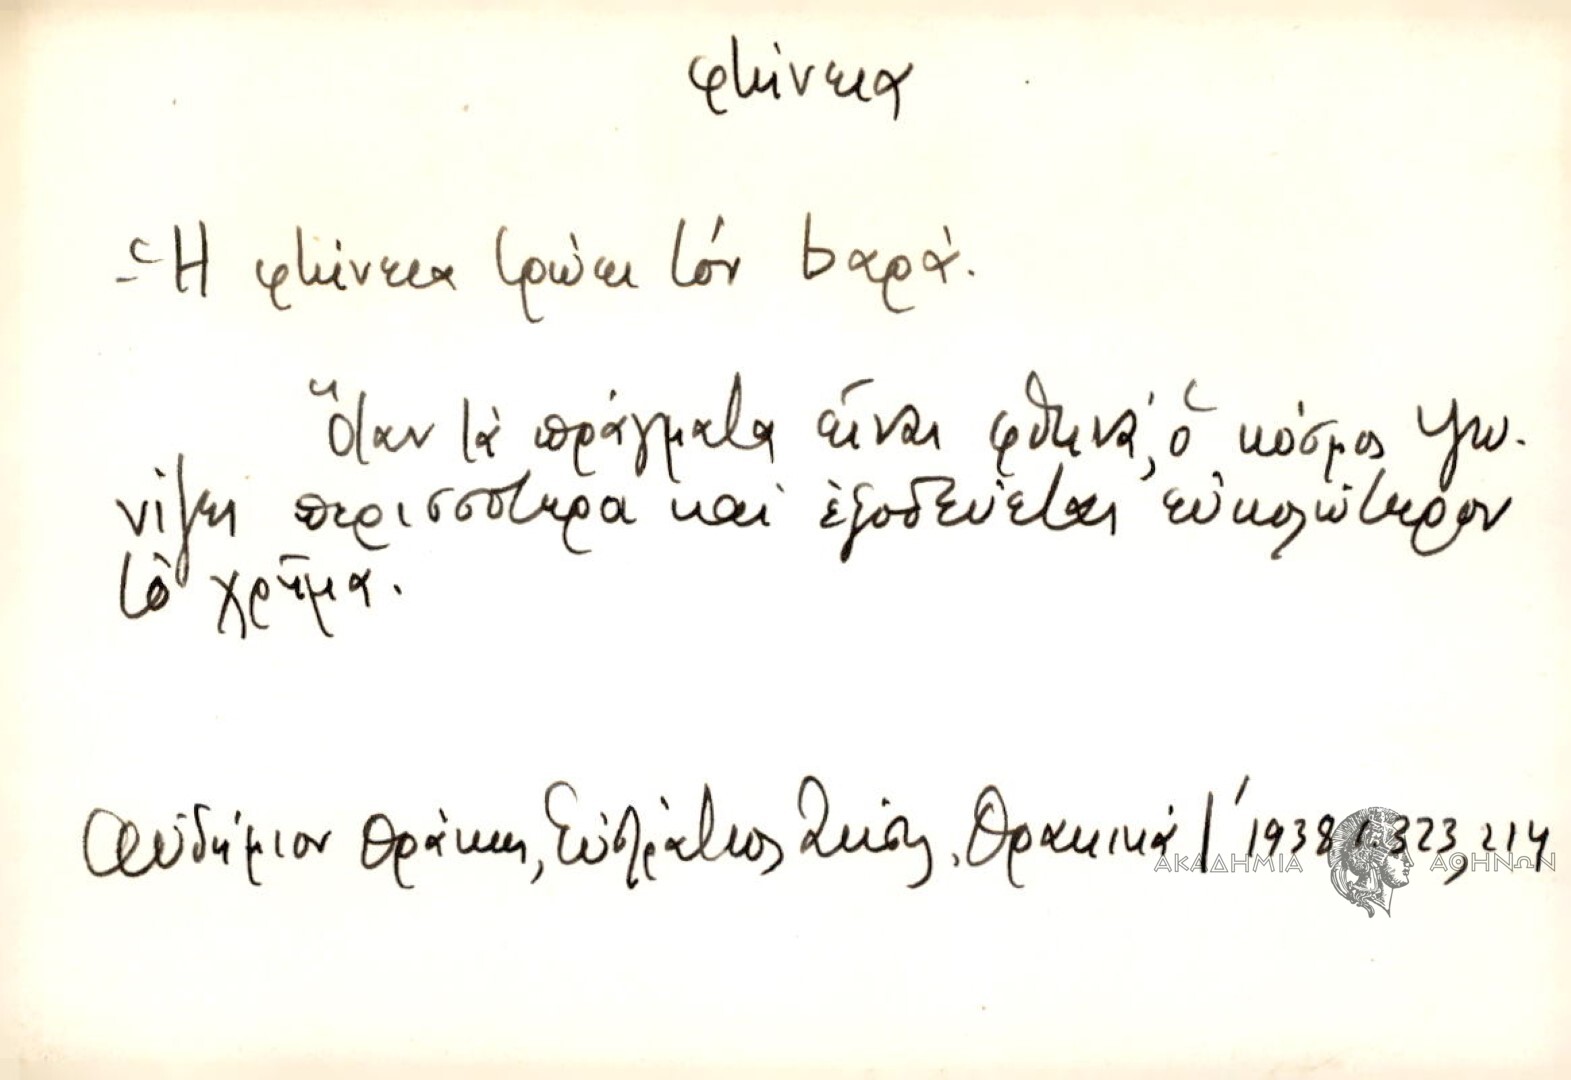 φτήνεια
- Ἡ φτήνεια τρώει τὸν παρά.
Ὅταν τὰ πράγματα εἶναι φθηνά, ὁ κόσμος ψω-
νίζει περισσότερα καὶ ἐξοδεύεται εὐκολώτερον
τὸ χρῆμα.
Θράκης, Εὐστράτιος Ζήσης, Θρακικά 1938 323, 214
ΑΚΑΔΗΜΙΑ ΑΘΗΝΩΝ